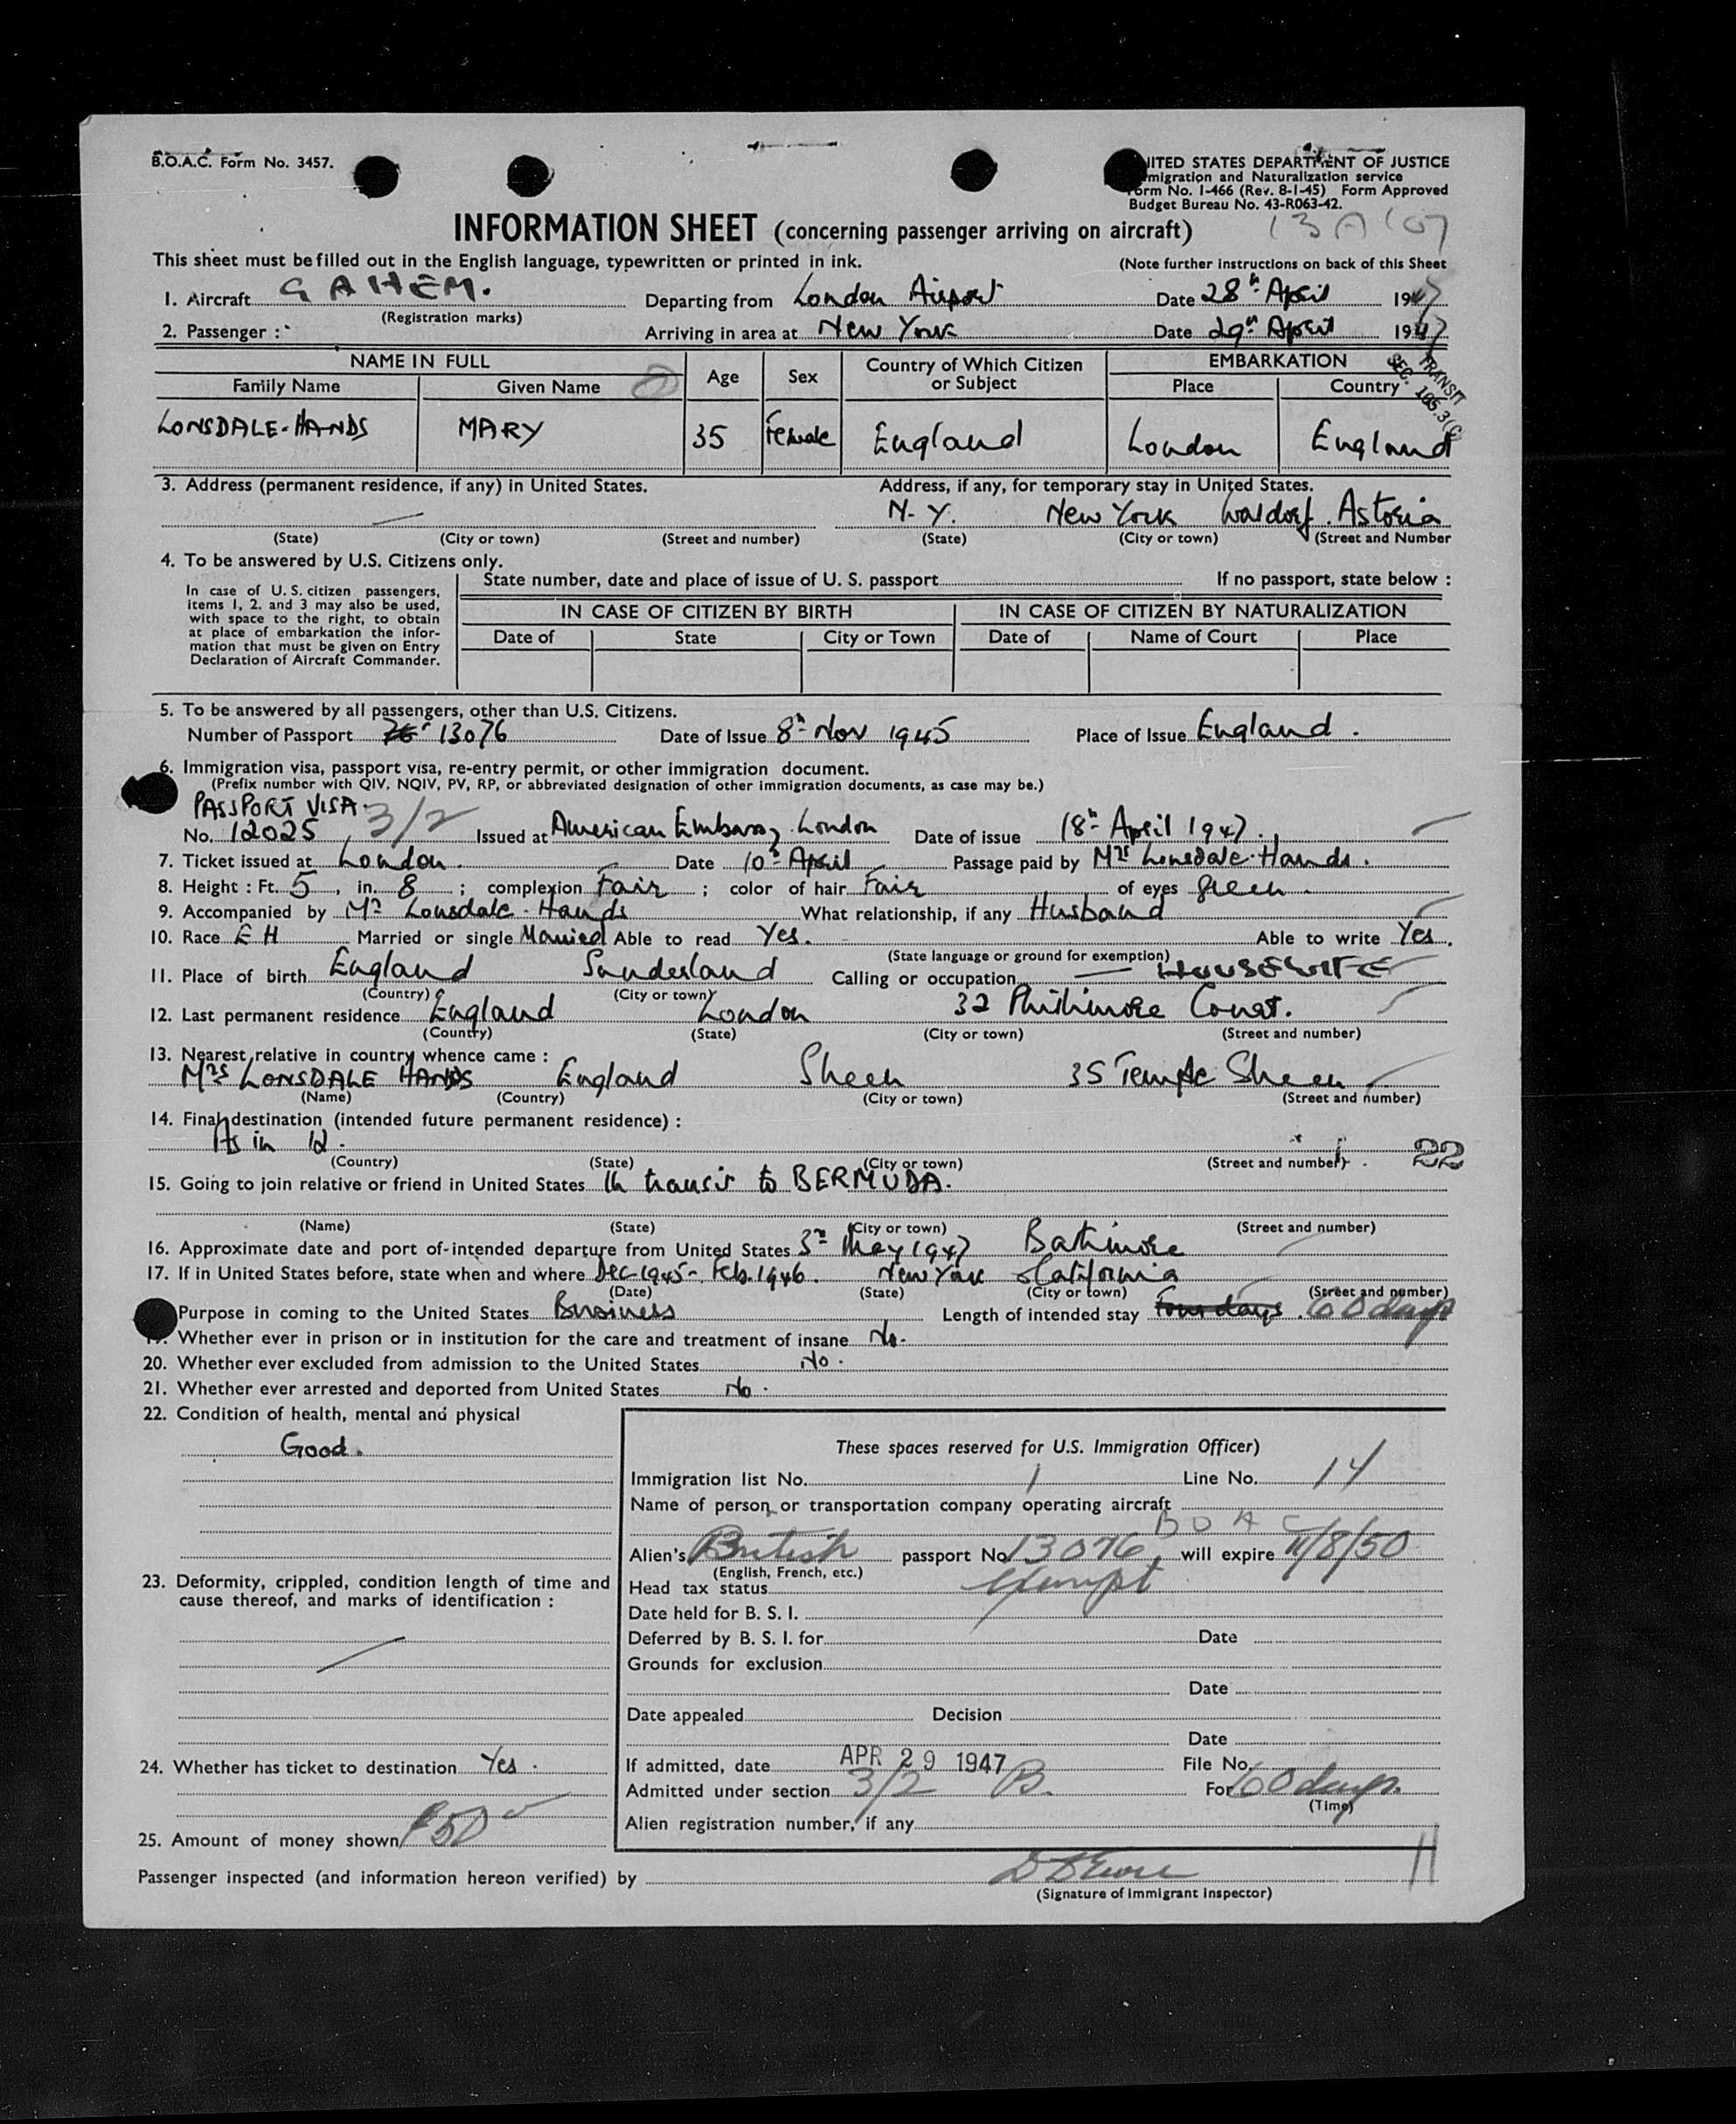 B.O.A.C. Form No. 3457.
UNITED STATES DEPARTMENT OF JUSTICE
Immigration and Naturalization service
Form No. I-466 (Rev. 8-1-45) Form Approved
Budget Bureau No. 43-R063-42.
INFORMATION SHEET (concerning passenger arriving on aircraft)
This sheet must be filled out in the English language, typewritten or printed in ink.
(Note further instructions on back of this Sheet
1. Aircraft G AHEM. Departing from London Airport Date 28th April 1947
(Registration marks)
2. Passenger : Arriving in area at New York Date 29th April 1947
TRANSIT
SEC. 105.3(c)
NAME IN FULL Age Sex Country of Which Citizen or Subject EMBARKATION
Family Name Given Name Place Country
LONSDALE-HANDS MARY 35 Female England London England
3. Address (permanent residence, if any) in United States. Address, if any, for temporary stay in United States.
— N.Y. New York Waldorf. Astoria
(State) (City or town) (Street and number) (State) (City or town) (Street and Number
4. To be answered by U.S. Citizens only.
In case of U.S. citizen passengers, items 1, 2, and 3 may also be used, with space to the right, to obtain at place of embarkation the infor-mation that must be given on Entry Declaration of Aircraft Commander.
State number, date and place of issue of U. S. passport If no passport, state below :
IN CASE OF CITIZEN BY BIRTH IN CASE OF CITIZEN BY NATURALIZATION
Date of State City or Town Date of Name of Court Place
5. To be answered by all passengers, other than U.S. Citizens.
Number of Passport 13076 Date of Issue 8th Nov 1945 Place of Issue England.
6. Immigration visa, passport visa, re-entry permit, or other immigration document.
(Prefix number with QIV, NQIV, PV, RP, or abbreviated designation of other immigration documents, as case may be.)
PASSPORT VISA.
No. 12025 3/2 Issued at American Embassy. London Date of issue 18th April 1947.
7. Ticket issued at London. Date 10th April Passage paid by Mrs Lonsdale-Hands.
8. Height : Ft. 5, in. 8 ; complexion Fair ; color of hair Fair of eyes green.
9. Accompanied by Mr Lonsdale-Hands What relationship, if any Husband
10. Race EH Married or single Married Able to read Yes. Able to write Yes.
(State language or ground for exemption)
11. Place of birth England Sunderland Calling or occupation — HOUSEWIFE
(Country) (City or town)
12. Last permanent residence England London 32 Phillimore Court.
(Country) (State) (City or town) (Street and number)
13. Nearest relative in country whence came :
Mrs LONSDALE HANDS England Sheen 35 Temple Sheen
(Name) (Country) (City or town) (Street and number)
14. Final destination (intended future permanent residence) :
As in 12. 22
(Country) (State) (City or town) (Street and number)
15. Going to join relative or friend in United States In transit to BERMUDA.
(Name) (State) (City or town) (Street and number)
16. Approximate date and port of intended departure from United States 3rd May 1947 Baltimore
17. If in United States before, state when and where Dec 1945 - Feb. 1946. New York California
(Date) (State) (City or town) (Street and number)
Purpose in coming to the United States Business Length of intended stay Four days. 60 days
19. Whether ever in prison or in institution for the care and treatment of insane No.
20. Whether ever excluded from admission to the United States No.
21. Whether ever arrested and deported from United States No.
22. Condition of health, mental and physical
Good.
23. Deformity, crippled, condition length of time and cause thereof, and marks of identification :
24. Whether has ticket to destination Yes.
25. Amount of money shown 50
These spaces reserved for U.S. Immigration Officer)
Immigration list No. 1 Line No. 14
Name of person or transportation company operating aircraft
BOAC
Alien's British passport No. 13076, will expire 11/8/50
(English, French, etc.)
Head tax status exempt
Date held for B. S. I.
Deferred by B. S. I. for Date
Grounds for exclusion
Date
Date appealed Decision
Date
If admitted, date APR 29 1947 File No.
Admitted under section 3/2 B. For 60 days.
(Time)
Alien registration number, if any
11
Passenger inspected (and information hereon verified) by
(Signature of Immigrant Inspector)